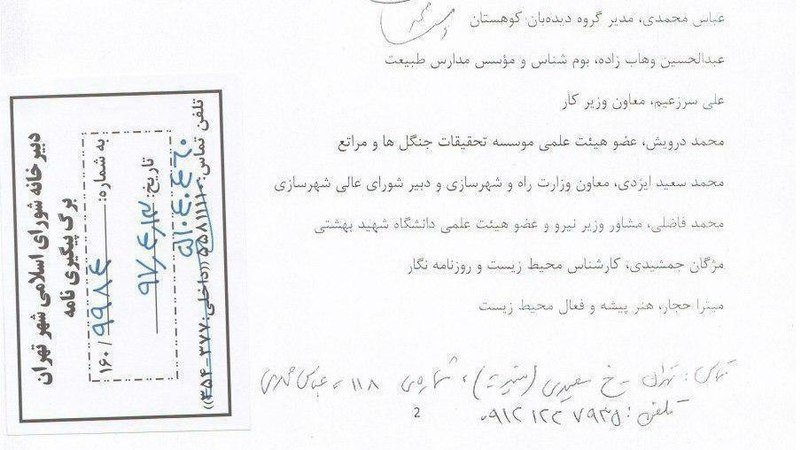 عباس محمدی، مدیر گروه دیده‌بان کوهستان
عبدالحسین وهاب زاده، بوم شناس و مؤسس مدارس طبیعت
علی سرزعیم، معاون وزیر کار
محمد درویش، عضو هیئت علمی موسسه تحقیقات جنگل ها و مراتع
محمد سعید ایزدی، معاون وزارت راه و شهرسازی و دبیر شورای عالی شهرسازی
محمد فاضلی، مشاور وزیر نیرو و عضو هیئت علمی دانشگاه شهید بهشتی
مژگان جمشیدی، کارشناس محیط زیست و روزنامه نگار
میترا حجار، هنر پیشه و فعال محیط زیست
تماس: تهران خ سعیدی ۱۱۸ عباس محمدی
تلفن: ۰۹۱۲ ۱۲۳ ۷۹۳۵
2
دبیرخانه شورای اسلامی شهر تهران
برگ پیگیری نامه
به شماره: ۱۶۰/ ۹۹۸۴
تاریخ: ۹۷،۴،۱۳
۵۱۰۴۰۴۶۰
تلفن تماس: ۵۵۸۱۱۱۱۰ ((داخلی: ۳۷۷-۳۵۴))